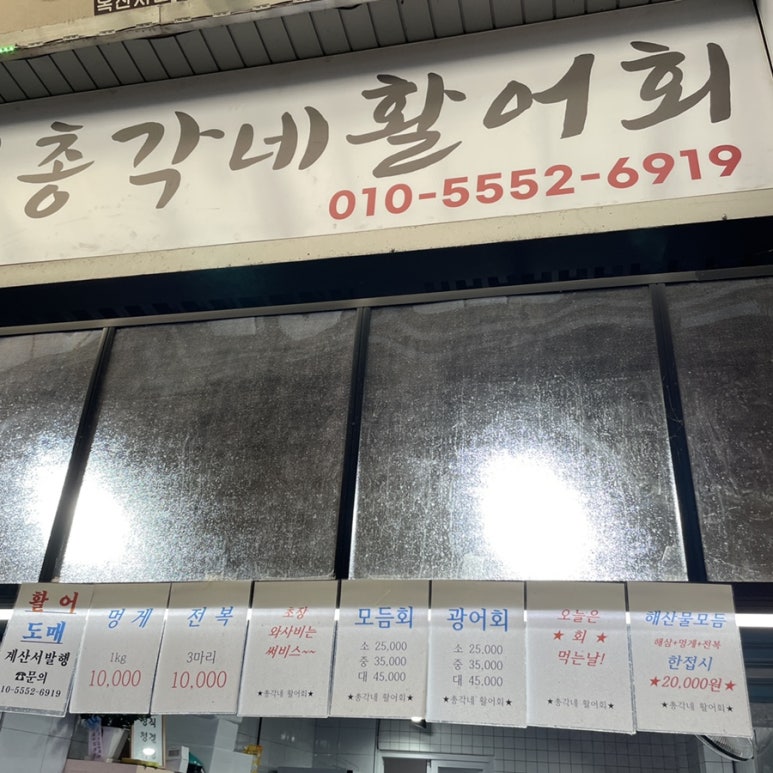 총각네활어회
010-5552-6919
활어
도매
계산서발행
☎문의
10-5552-6919
멍게
1kg
10,000
전복
3마리
10,000
초장
와사비는
써비스~~
★총각네 활어회★
모듬회
소 25,000
중 35,000
대 45,000
★총각네 활어회★
광어회
소 25,000
중 35,000
대 45,000
★총각네 활어회★
오늘은
★회★
먹는날!
★총각네 활어회★
해산물모듬
해삼+멍게+전복
한접시
★20,000원★
★총각네 활어회★